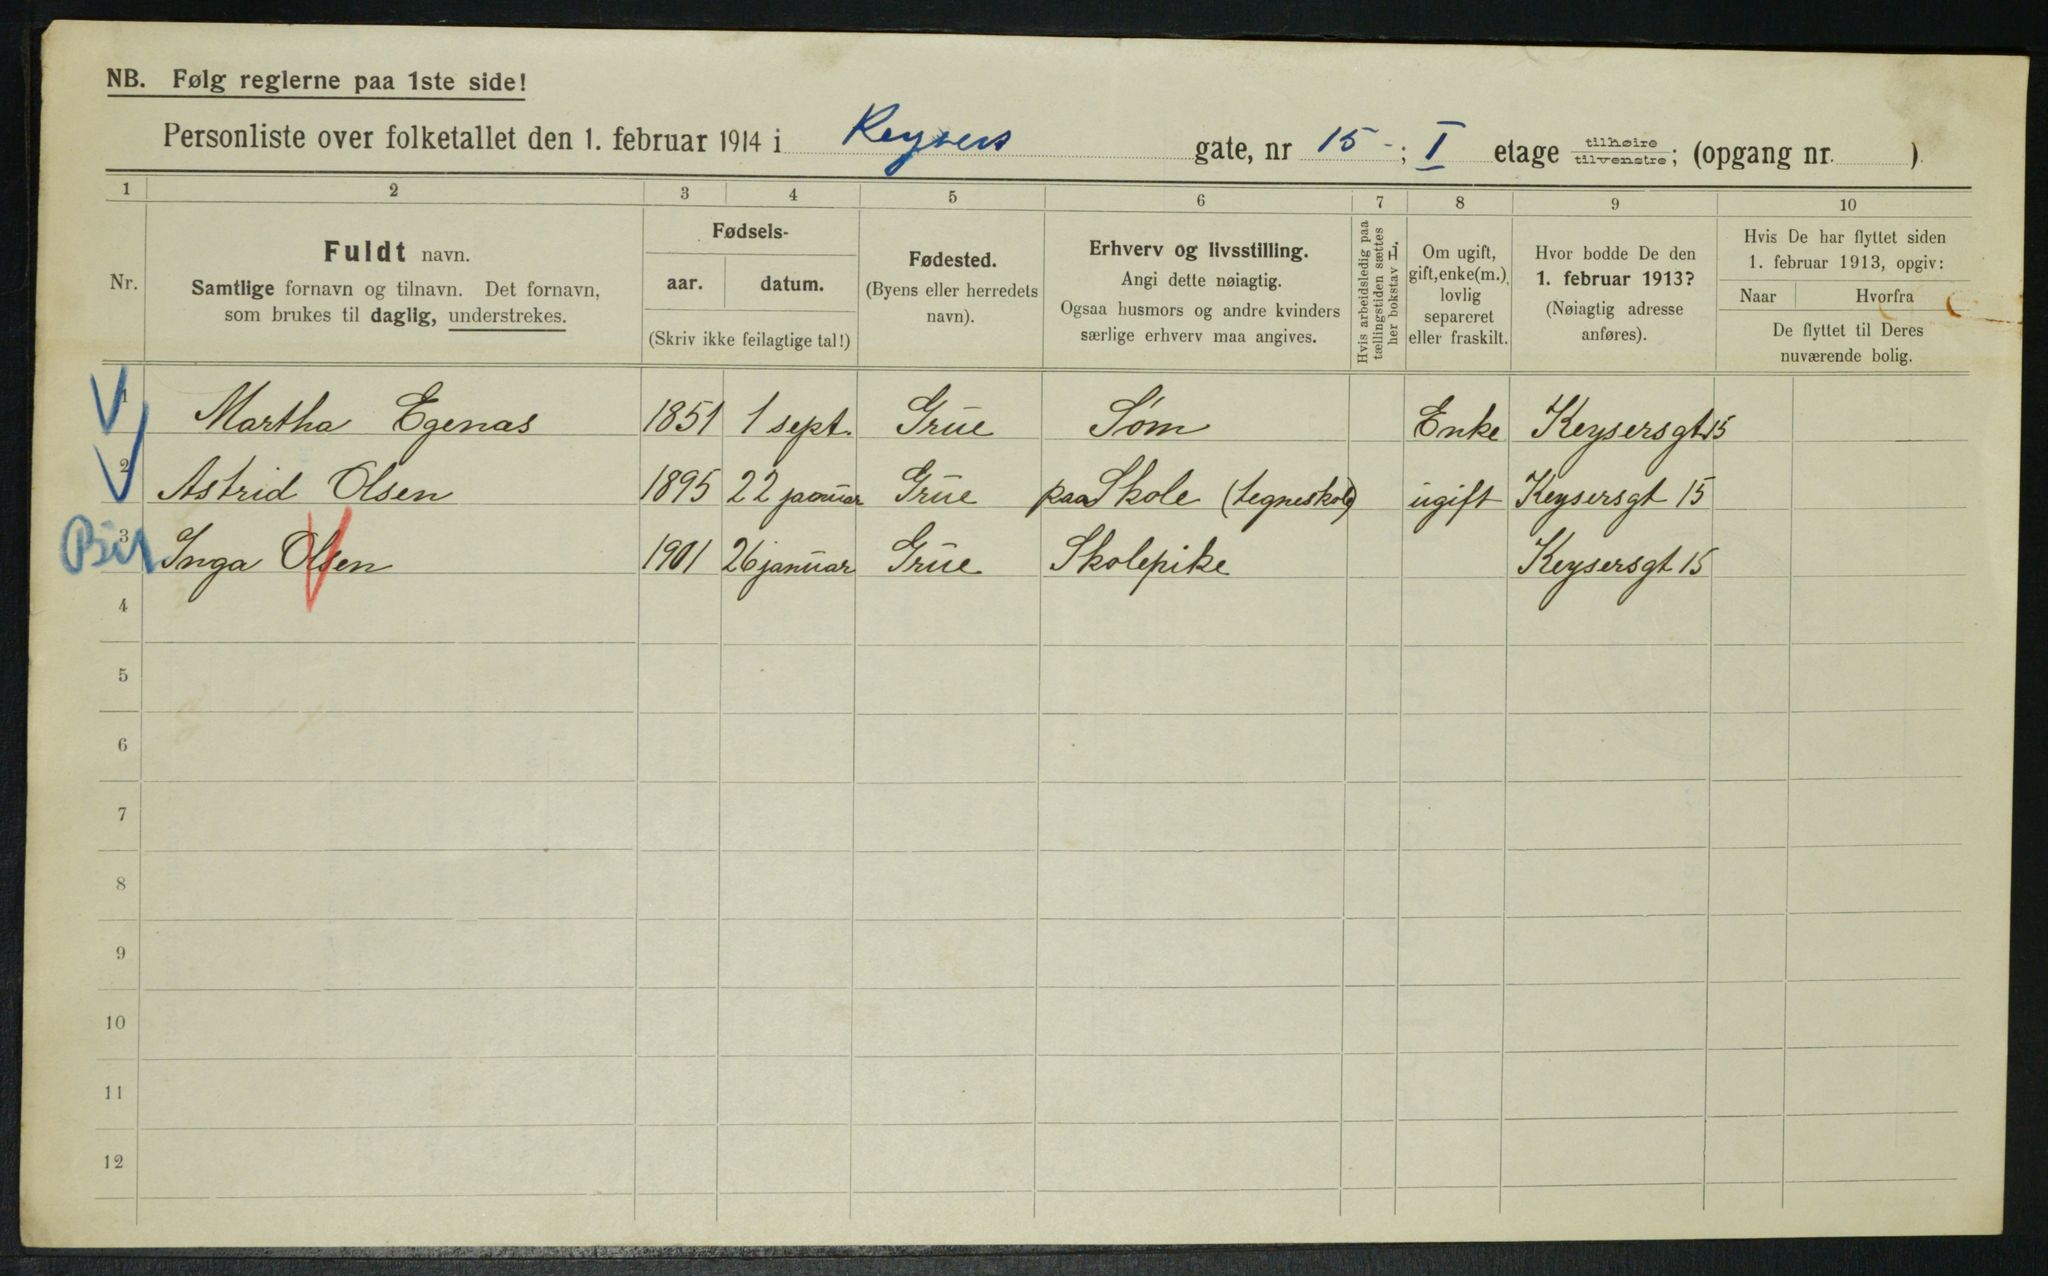 NB. Følg reglerne paa 1ste side!
Personliste over folketallet den 1. februar 1914 i Keysers gate, nr 15 -; I etage tilhøire tilvenstre; (opgang nr. ).
1 2 3 4 5 6 7 8 9 10
Nr.
Fuldt navn.
Samtlige fornavn og tilnavn. Det fornavn,
som brukes til daglig, understrekes.
Fødsels-
aar. datum.
(Skriv ikke feilagtige tal!)
Fødested.
(Byens eller herredets
navn).
Erhverv og livsstilling.
Angi dette nøiagtig.
Ogsaa husmors og andre kvinders
særlige erhverv maa angives.
Hvis arbeidsledig paa
tællingstiden sættes
her bokstav L.
Om ugift,
gift, enke(m.),
lovlig
separeret
eller fraskilt.
Hvor bodde De den
1. februar 1913?
(Nøiagtig adresse
anføres).
Hvis De har flyttet siden
1. februar 1913, opgiv:
Naar Hvorfra
De flyttet til Deres
nuværende bolig.
1 Martha Egenas 1851 1 sept. Grue Søm Enke Keysersgt 15
2 Astrid Olsen 1895 22 januar Grue paa Skole (tegneskole) ugift Keysersgt 15
3 Inga Olsen 1901 26 januar Grue Skolepike Keysersgt 15
4
5
6
7
8
9
10
11
12